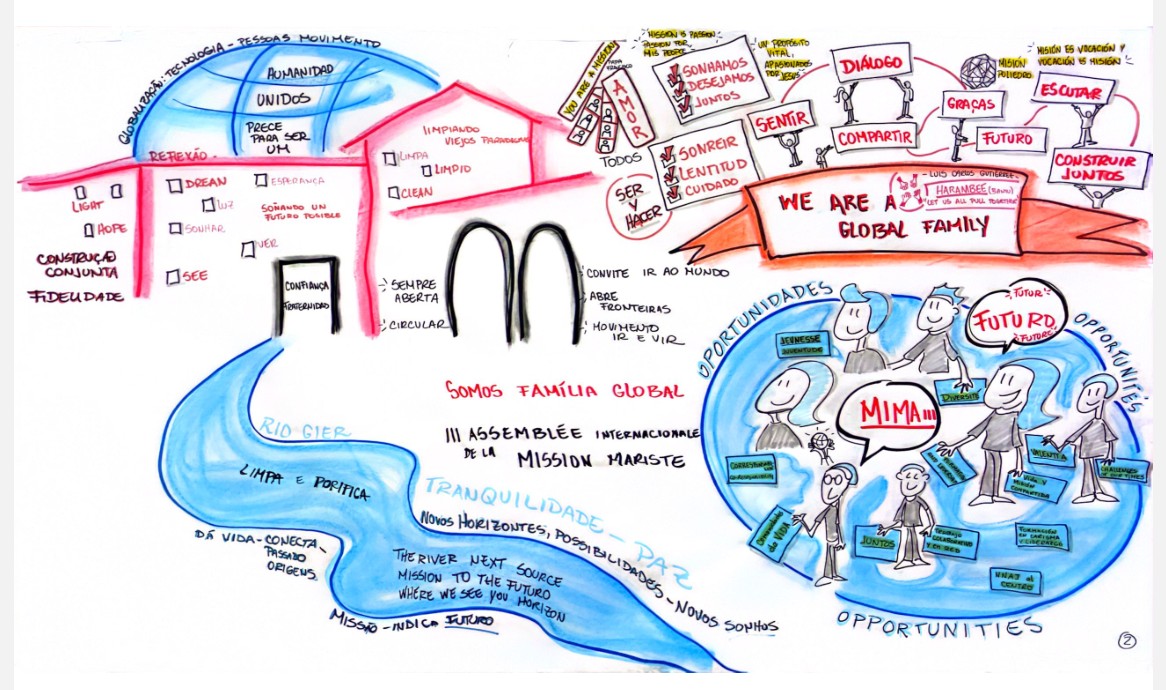 GLOBALIZAÇÃO: TECNOLOGIA - PESSOAS MOVIMENTO
HUMANIDAD
UNIDOS
PRECE
PARA SER
UM
REFLEXÃO
LIGHT
HOPE
CONSTRUÇÃO
CONJUNTA
FIDELIDADE
DREAN
ESPERANÇA
LUZ
SOÑANDO UN
FUTURO POSIBLE
SONHAR
VER
SEE
CONFIANÇA
FRATERNIDAD
LIMPIANDO
VIEJOS PARADIGMAS
LIMPA
LIMPIO
CLEAN
SEMPRE
ABERTA
CIRCULAR
CONVITE IR AO MUNDO
ABRE
FRONTEIRAS
MOVIMENTO
IR E VIR
YOU ARE A MISSION
PAPA
FRANCISCO
AMOR
TODOS
MISSION IS PASSION
PASSION FOR
MIS PEOPLE
SONHAMOS
DESEJAMOS
JUNTOS
UN PROPÓSITO
VITAL,
APASIONADOS
POR JESUS
SONREIR
LENTITUD
CUIDADO
SER
Y
HACER
SENTIR
DIÁLOGO
COMPARTIR
GRAÇAS
FUTURO
MISION
POLIEDRO
MISIÓN ES VOCACIÓN Y
VOCACIÓN ES MISIÓN
ESCUTAR
CONSTRUIR
JUNTOS
WE ARE A
GLOBAL FAMILY
- LUIS CARLOS GUTIÉRREZ -
HARAMBEE
LET US ALL PULL TOGETHER
SOMOS FAMÍLIA GLOBAL
III ASSEMBLÉE INTERNACIONALE
DE LA MISSION MARISTE
RIO GIER
LIMPA E PURIFICA
DÁ VIDA - CONECTA -
PASSADO
ORIGENS.
TRANQUILIDADE - PAZ
NOVOS HORIZONTES, POSSIBILIDADES - NOVOS SONHOS
THE RIVER NEXT SOURCE
MISSION TO THE FUTURO
WHERE WE SEE YOU HORIZON
MISSÃO - INDICA FUTURO
OPORTUNIDADES
OPPORTUNITÉS
OPPORTUNITIES
FUTUR
FUTURO
FUTURE
MIMA III
JEUNESSE
JUVENTUDE
DIVERSITÉ
VALENTIA
CHALLENGES
OF OUR TIMES
VIDA Y
MISIÓN
COMPARTIDA
CORRESPONSABILIDAD
Comunidade
de VIDA
JUNTOS
TRABAJO
COLABORATIVO
Y EN RED
FORMACIÓN
EN CARISMA
Y LIDERAZGO
NNAJ al
CENTRO
2